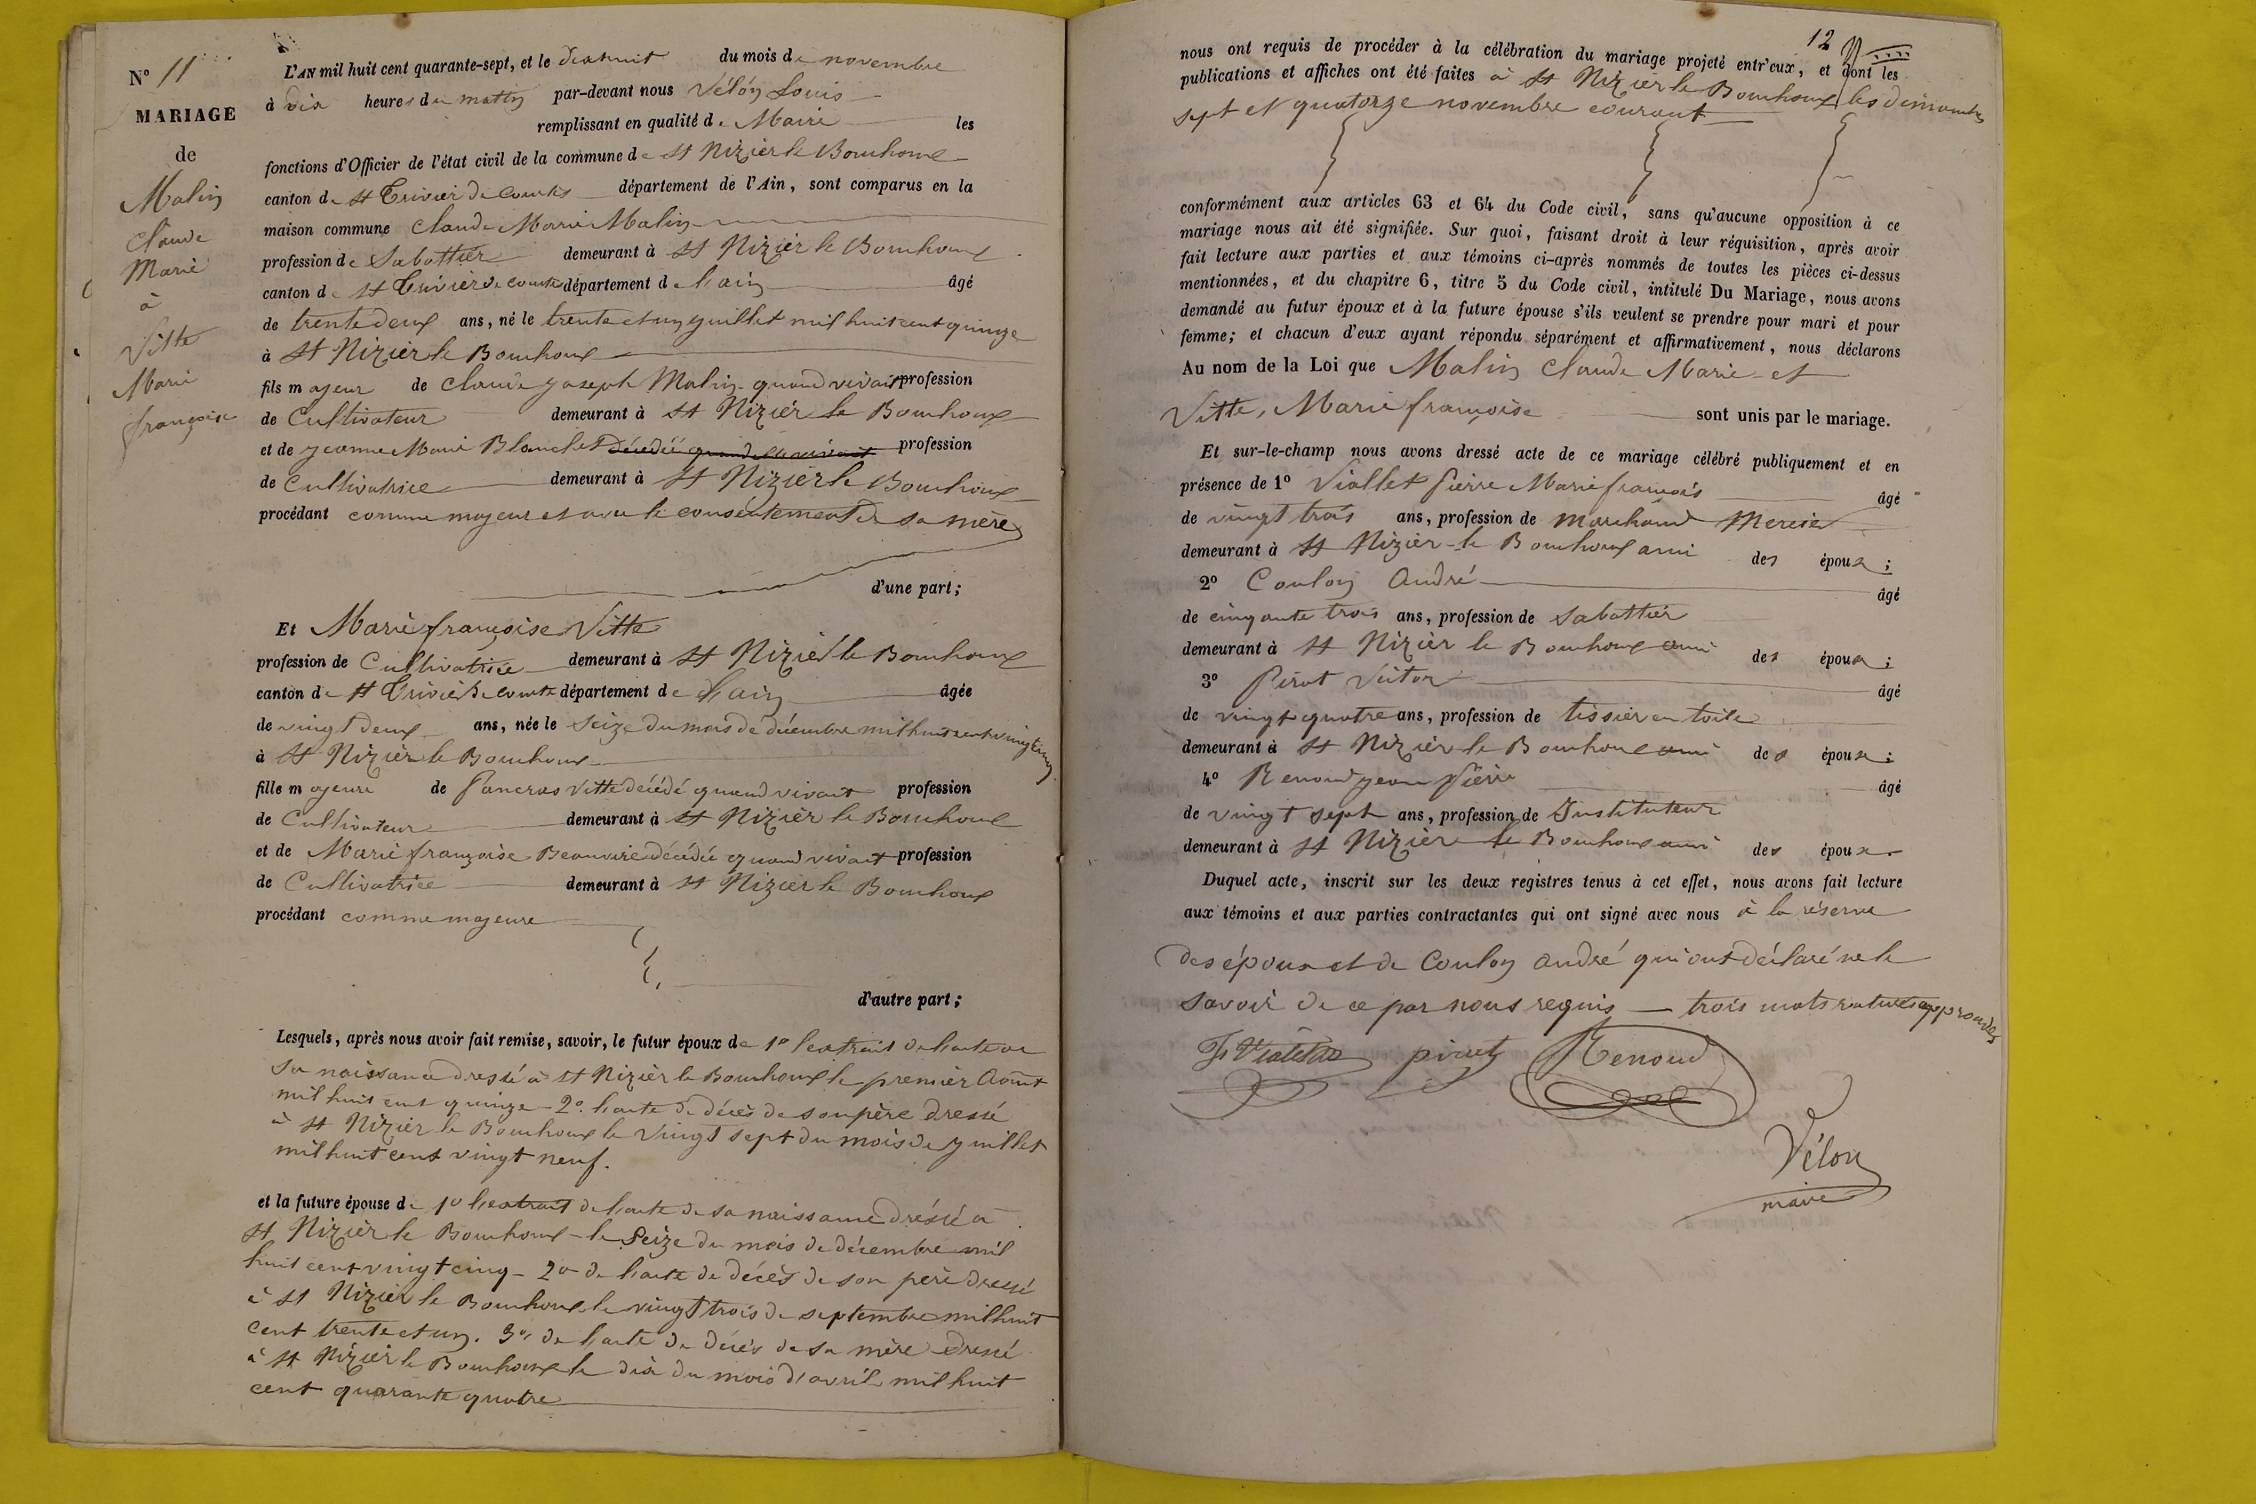 N° 11
MARIAGE
de
Malin
Claude
Marie
à
Vitte
Marie
françoise
L'AN mil huit cent quarante-sept, et le dixhuit du mois de novembre
à dix heures du matin par-devant nous Vélon Louis
remplissant en qualité de Maire les
fonctions d'Officier de l'état civil de la commune de St Nizier le Bouchoux
canton de St Trivier de Courtes département de l'Ain, sont comparus en la
maison commune Claude Marie Malin
profession de Sabottier demeurant à St Nizier le Bouchoux
canton de St Trivier de Courtes département de l'ain âgé
de trente deux ans, né le trente et un juillet mil huit cent quinze
à St Nizier le Bouchoux
fils majeur de Claude Joseph Malin quand vivait profession
de Cultivateur demeurant à St Nizier le Bouchoux
et de jeanne Marie Blanchet Décédée quand elle vivait profession
de Cultivatrice demeurant à St Nizier le Bouchoux
procédant comme majeur et avec le consentement de sa mère
d'une part;
Et Marie françoise Vitte
profession de Cultivatrice demeurant à St Nizier le Bouchoux
canton de St Trivier de Courtes département de l'ain âgée
de vingt deux ans, née le Seize du mois de décembre mil huit cent vingt cinq
à St Nizier le Bouchoux
fille majeure de Pancras Vitte décédé quand vivait profession
de Cultivateur demeurant à St Nizier le Bouchoux
et de Marie françoise décédée quand vivait profession
de Cultivatrice demeurant à St Nizier le Bouchoux
procédant comme majeure
d'autre part;
Lesquels, après nous avoir fait remise, savoir, le futur époux de 1° l'extrait de l'acte de
sa naissance dressé à St Nizier le Bouchoux le premier Août
mil huit cent quinze - 2° l'acte de décès de son père dressé
à St Nizier le Bouchoux le vingt sept du mois de juillet
mil huit cent vingt neuf.
et la future épouse de 1° l'extrait de l'acte de sa naissance dressé à
St Nizier le Bouchoux - le Seize du mois de décembre mil
huit cent vingt cinq - 2° de l'acte de décès de son père dressé
à St Nizier le Bouchoux le vingt trois de septembre mil huit
cent trente et un. 3° de l'acte de décès de sa mère dressé
à St Nizier le Bouchoux le dix du mois d'avril mil huit
cent quarante quatre
12
nous ont requis de procéder à la célébration du mariage projeté entr'eux, et dont les
publications et affiches ont été faites à St Nizier le Bouchoux les dimanches
sept et quatorze novembre courant
conformément aux articles 63 et 64 du Code civil, sans qu'aucune opposition à ce
mariage nous ait été signifiée. Sur quoi, faisant droit à leur réquisition, après avoir
fait lecture aux parties et aux témoins ci-après nommés de toutes les pièces ci-dessus
mentionnées, et du chapitre 6, titre 5 du Code civil, intitulé Du Mariage, nous avons
demandé au futur époux et à la future épouse s'ils veulent se prendre pour mari et pour
femme; et chacun d'eux ayant répondu séparément et affirmativement, nous déclarons
Au nom de la Loi que Malin Claude Marie et
Vitte, Marie françoise sont unis par le mariage.
Et sur-le-champ nous avons dressé acte de ce mariage célébré publiquement et en
présence de 1° Viallet Pierre Marie françois âgé
de vingt trois ans, profession de marchand Mercier
demeurant à St Nizier le Bouchoux ami des époux;
2° Coulon André âgé
de cinqante trois ans, profession de Sabottier
demeurant à St Nizier le Bouchoux ami des époux;
3° Pirat Victor âgé
de vingt quatre ans, profession de tissier en toile
demeurant à St Nizier le Bouchoux ami des époux;
4° Renoud jean Pierre âgé
de vingt sept ans, profession de Instituteur
demeurant à St Nizier le Bouchoux ami des époux
Duquel acte, inscrit sur les deux registres tenus à cet effet, nous avons fait lecture
aux témoins et aux parties contractantes qui ont signé avec nous à la réserve
des époux et de Coulon André qui ont déclaré ne le
savoir de ce par nous requis — trois mots raturés approuvés
Renoud
Vélon
maire